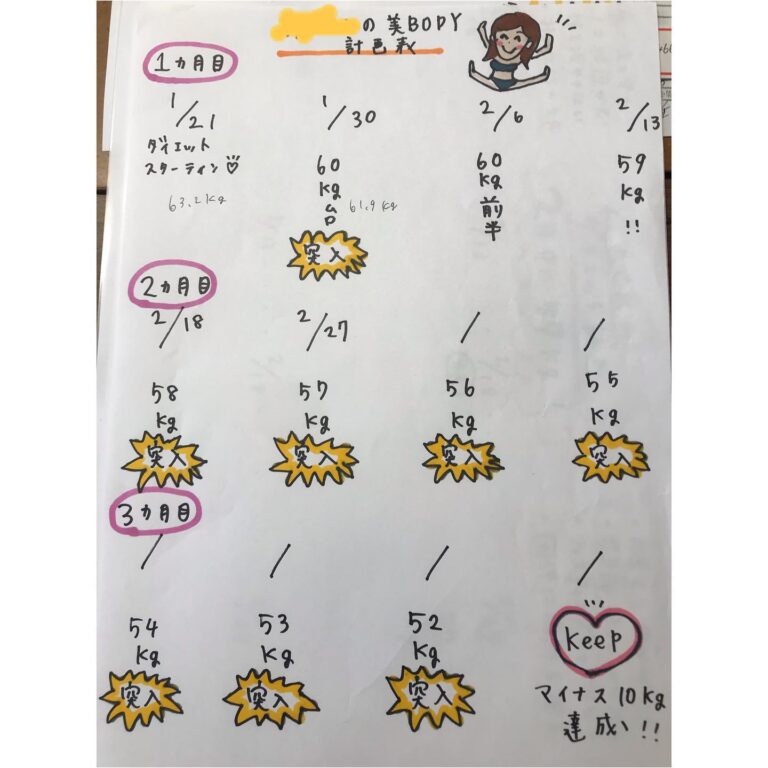 の美BODY
計画表
1ヵ月目
1/21
ダイエット
スターティン♡
63.2kg
1/30
60
kg
台
61.9kg
突入
2/6
60
kg
前
半
2/13
59
kg
!!
2ヵ月目
2/18
58
kg
突入
2/27
57
kg
突入
/
56
kg
突入
/
55
kg
突入
3ヵ月目
/
54
kg
突入
/
53
kg
突入
/
52
kg
突入
/
Keep
マイナス10kg
達成、!!